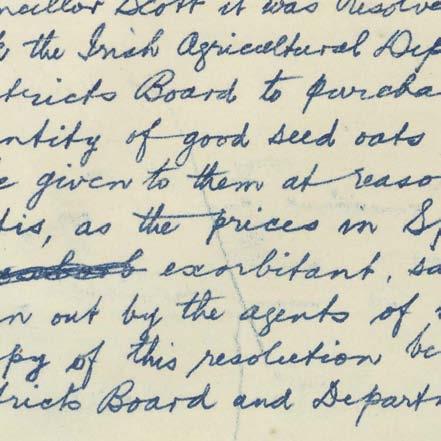 ncillor Scott it was resolve
the Irish Agricultural Dep
tricts Board to purcha
ntity of good seed oats
given to them at reaso
tis, as the prices in Sp
exorbitant, sa
n out by the agents of
py of this resolution be
tricts Board and Departm